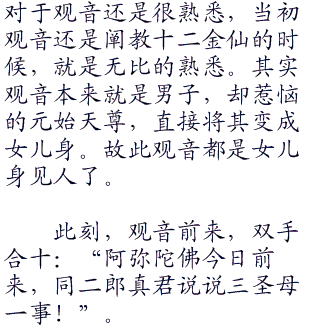 对于观音还是很熟悉，当初
观音还是阐教十二金仙的时
候，就是无比的熟悉。其实
观音本来就是男子，却惹恼
的元始天尊，直接将其变成
女儿身。故此观音都是女儿
身见人了。
此刻，观音前来，双手
合十：“阿弥陀佛今日前
来，同二郎真君说说三圣母
一事！”。